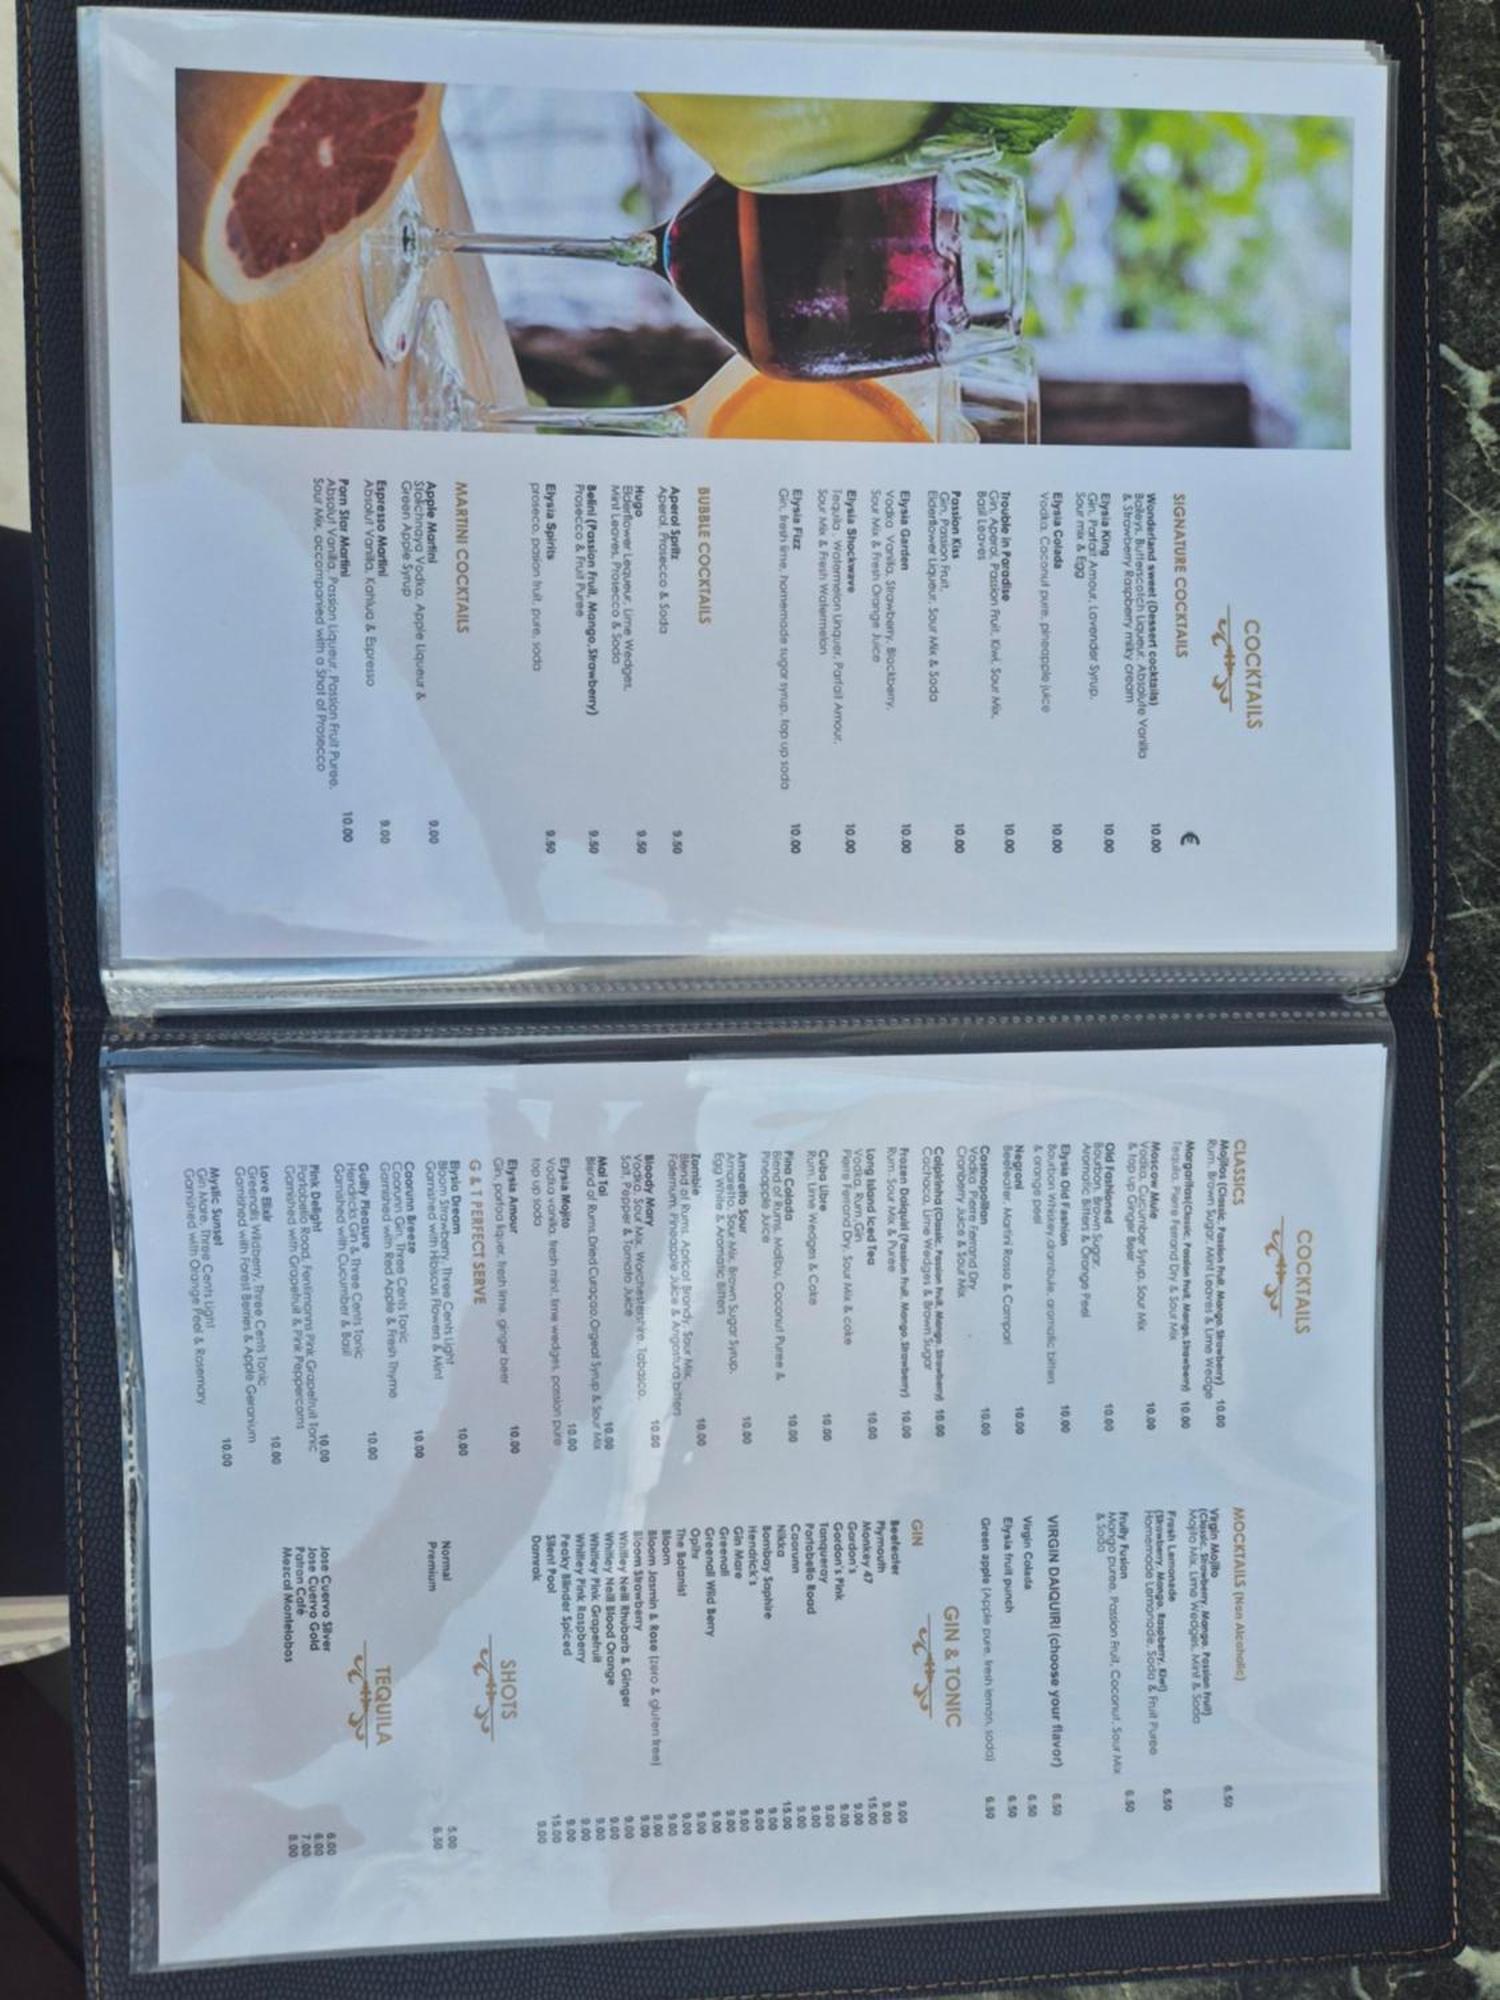 COCKTAILS
SIGNATURE COCKTAILS €
Wonderland sweet (Dessert cocktails) 10.00
Baileys, Butterscotch Liqueur, Absolute Vanilla
& Strawberry Raspberry milky cream
Elysia King 10.00
Gin, Parfait Amour, Lavender Syrup,
Sour mix & Egg
Elysia Colada 10.00
Vodka, Coconut pure, pineapple juice
Trouble in Paradise 10.00
Gin, Aperol, Passion Fruit, Kiwi, Sour Mix,
Basil Leaves
Passion Kiss 10.00
Gin, Passion Fruit,
Elderflower Liqueur, Sour Mix & Soda
Elysia Garden 10.00
Vodka Vanilla, Strawberry, Blackberry,
Sour Mix & Fresh Orange Juice
Elysia Shockwave 10.00
Tequila, Watermelon Linquer, Parfait Amour,
Sour Mix & Fresh Watermelon
Elysia Fizz 10.00
Gin, fresh lime, homemade sugar syrup, top up soda
BUBBLE COCKTAILS
Aperol Spritz 9.50
Aperol, Prosecco & Soda
Hugo 9.50
Elderflower Lequeur, Lime Wedges,
Mint Leaves, Prosecco & Soda
Belini (Passion Fruit, Mango, Strawberry) 9.50
Prosecco & Fruit Puree
Elysia Spirits 9.50
proseco, pasion fruit, pure, soda
MARTINI COCKTAILS
Apple Martini 9.00
Stolichnaya Vodka, Apple Liqueur &
Green Apple Syrup
Espresso Martini 9.00
Absolut Vanilla, Kahlua & Espresso
Porn Star Martini 10.00
Absolut Vanilla, Passion Liqueur, Passion Fruit Puree,
Sour Mix, accompanied with a Shot of Prosecco
COCKTAILS
CLASSICS
Mojitos (Classic, Passion Fruit, Mango, Strawberry) 10.00
Rum, Brown Sugar, Mint Leaves & Lime Wedge
Margaritas(Classic, Passion Fruit, Mango, Strawberry) 10.00
Tequila, Pierre Ferrand Dry & Sour Mix
Moscow Mule 10.00
Vodka, Cucumber Syrup, Sour Mix
& top up Ginger Beer
Old Fashioned 10.00
Bourbon, Brown Sugar,
Aromatic Bitters & Orange Peel
Elysia Old Fashion 10.00
Bourbon Whiskey, drambuie, aromatic bitters
& orange peel
Negroni 10.00
Beefeater, Martini Rosso & Campari
Cosmopolitan 10.00
Vodka, Pierre Ferrand Dry
Cranberry Juice & Sour Mix
Caipirinha (Classic, Passion Fruit, Mango, Strawberry) 10.00
Cachaca, Lime Wedges & Brown Sugar
Frozen Daiquiri (Passion Fruit, Mango, Strawberry) 10.00
Rum, Sour Mix & Puree
Long Island Iced Tea 10.00
Vodka, Rum, Gin
Pierre Ferrand Dry, Sour Mix & coke
Cuba Libre 10.00
Rum, Lime Wedges & Coke
Pina Colada 10.00
Blend of Rums, Malibu, Coconut Puree &
Pineapple Juice
Amaretto Sour 10.00
Amaretto, Sour Mix, Brown Sugar Syrup,
Egg White & Aromatic Bitters
Zombie 10.00
Blend of Rums, Apricot Brandy, Sour Mix,
Falernum, Pineapple Juice & Angostura bitters
Bloody Mary 10.00
Vodka, Sour Mix, Worchestershire, Tabasco,
Salt, Pepper & Tomato Juice
Mai Tai 10.00
Blend of Rums, Dried Curaçao, Orgeat Syrup & Sour Mix
Elysia Mojito 10.00
Vodka vanilla, fresh mint, lime wedges, passion pure
top up soda
Elysia Amour 10.00
Gin, parfad liquer, fresh lime, ginger beer
G & T PERFECT SERVE
Elysia Dream 10.00
Bloom Strawberry, Three Cents Light
Garnished with Hibiscus Flowers & Mint
Caorunn Breeze 10.00
Caorunn Gin, Three Cents Tonic
Garnished with Red Apple & Fresh Thyme
Guilty Pleasure 10.00
Hendricks Gin & Three Cents Tonic
Garnished with Cucumber & Basil
Pink Delight 10.00
Portobello Road, Fentimans Pink Grapefruit Tonic
Garnished with Grapefruit & Pink Peppercorns
Love Elixir 10.00
Greenalls Wildberry, Three Cents Tonic
Garnished with Forest Berries & Apple Geranium
Mystic Sunset 10.00
Gin Mare, Three Cents Light
Garnished with Orange Peel & Rosemary
MOCKTAILS (Non Alcoholic)
Virgin Mojito 6.50
(Classic, Strawberry, Mango, Passion Fruit)
Mojito Mix, Lime Wedges, Mint & Soda
Fresh Lemonade 6.50
(Strawberry, Mango, Raspberry, Kiwi)
Homemade Lemonade, Soda & Fruit Puree
Fruity Fusion 6.50
Mango puree, Passion Fruit, Coconut, Sour Mix
& Soda
VIRGIN DAIQUIRI (choose your flavor) 6.50
Virgin Colada 6.50
Elysia fruit punch 6.50
Green apple (Apple pure, fresh lemon, soda) 6.50
GIN & TONIC
GIN
Beefeater 9.00
Plymouth 9.00
Monkey 47 15.00
Gordon's 9.00
Gordon's Pink 9.00
Tanqueray 9.00
Portobello Road 9.00
Caorunn 9.00
Nikka 15.00
Bombay Saphire 9.00
Hendrick's 9.00
Gin Mare 9.00
Greenall 9.00
Greenall Wild Berry 9.00
Opihr 9.00
The Botanist 9.00
Bloom 9.00
Bloom Jasmin & Rose (zero & gluten free) 9.00
Bloom Strawberry 9.00
Whitley Neill Rhubarb & Ginger 9.00
Whitley Neill Blood Orange 9.00
Whitley Pink Grapefruit 9.00
Whitley Pink Raspberry 9.00
Peaky Blinder Spiced 9.00
Silent Pool 15.00
Damrak 9.00
SHOTS
Normal 5.00
Premium 6.50
TEQUILA
Jose Cuervo Silver 6.00
Jose Cuervo Gold 6.00
Patron Café 7.00
Mezcal Montelobos 8.00